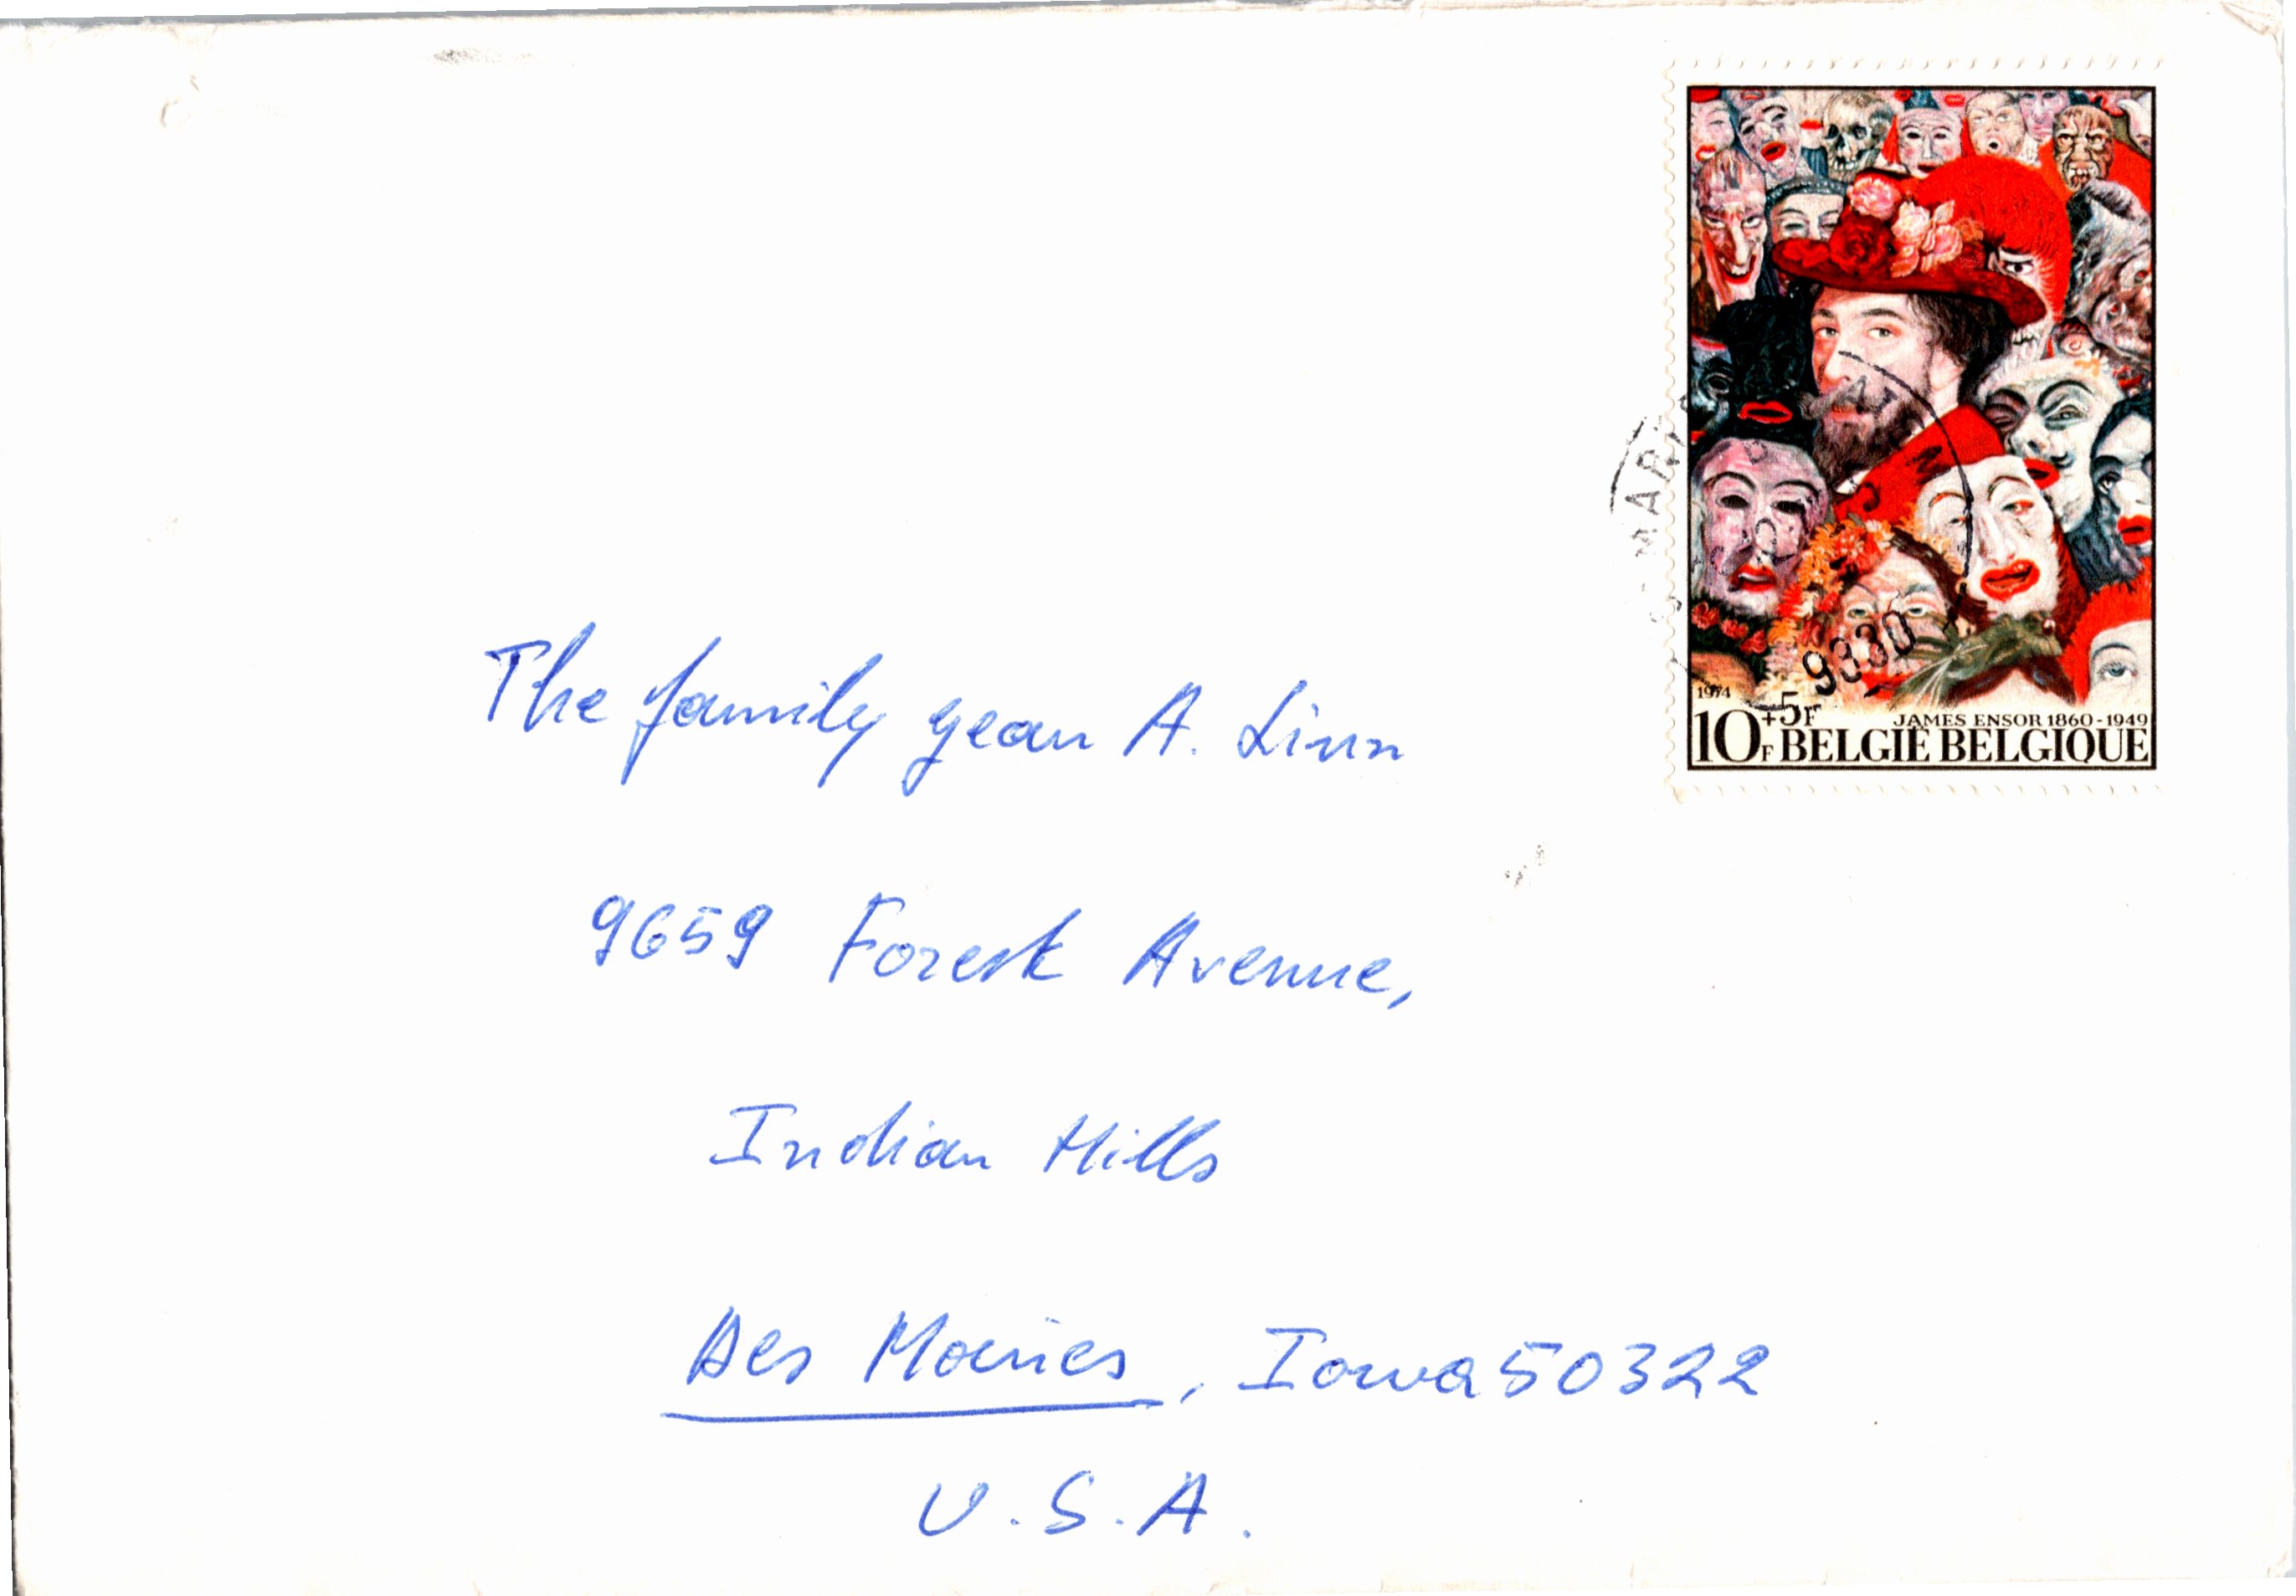 1974
10F +5F
JAMES ENSOR 1860-1949
BELGIË BELGIQUE
9330
The family Jean A. Linn
9659 Forest Avenue,
Indian Hills
Des Moines, Iowa 50322
U.S.A.